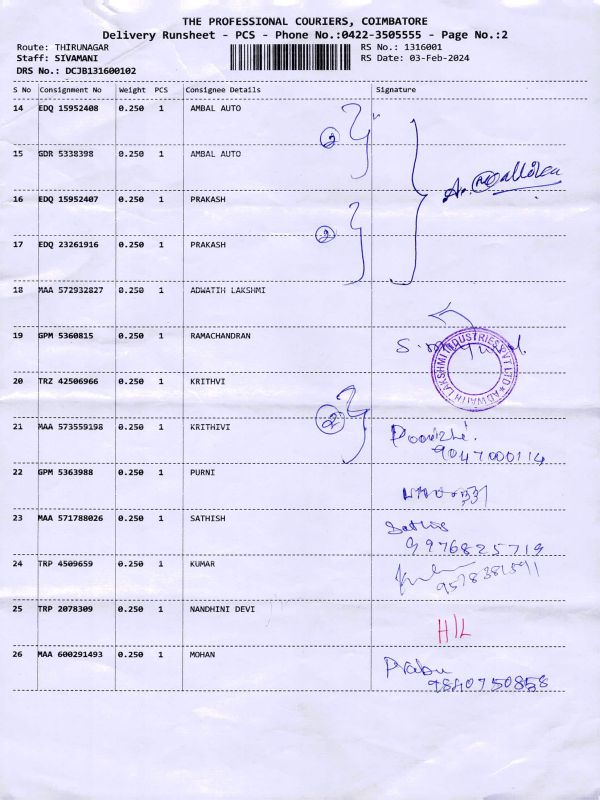 THE PROFESSIONAL COURIERS, COIMBATORE
Delivery Runsheet - PCS - Phone No.:0422-3505555 - Page No.:2
Route: THIRUNAGAR RS No.: 1316001
Staff: SIVAMANI RS Date: 03-Feb-2024
DRS No.: DCJB131600102
S No Consignment No Weight PCS Consignee Details Signature
14 EDQ 15952408 0.250 1 AMBAL AUTO
2
15 GDR 5338398 0.250 1 AMBAL AUTO
16 EDQ 15952407 0.250 1 PRAKASH
2
17 EDQ 23261916 0.250 1 PRAKASH
18 MAA 572932827 0.250 1 ADWATIH LAKSHMI
19 GPM 5360815 0.250 1 RAMACHANDRAN
ADWAITH LAKSHMI INDUSTRIES PVT LTD
20 TRZ 42506966 0.250 1 KRITHVI
2
21 MAA 573559198 0.250 1 KRITHIVI
9047000114
22 GPM 5363988 0.250 1 PURNI
23 MAA 571788026 0.250 1 SATHISH Sathis
9976825719
24 TRP 4509659 0.250 1 KUMAR
9578381591
25 TRP 2078309 0.250 1 NANDHINI DEVI H/L
26 MAA 600291493 0.250 1 MOHAN Prabu
9840750858